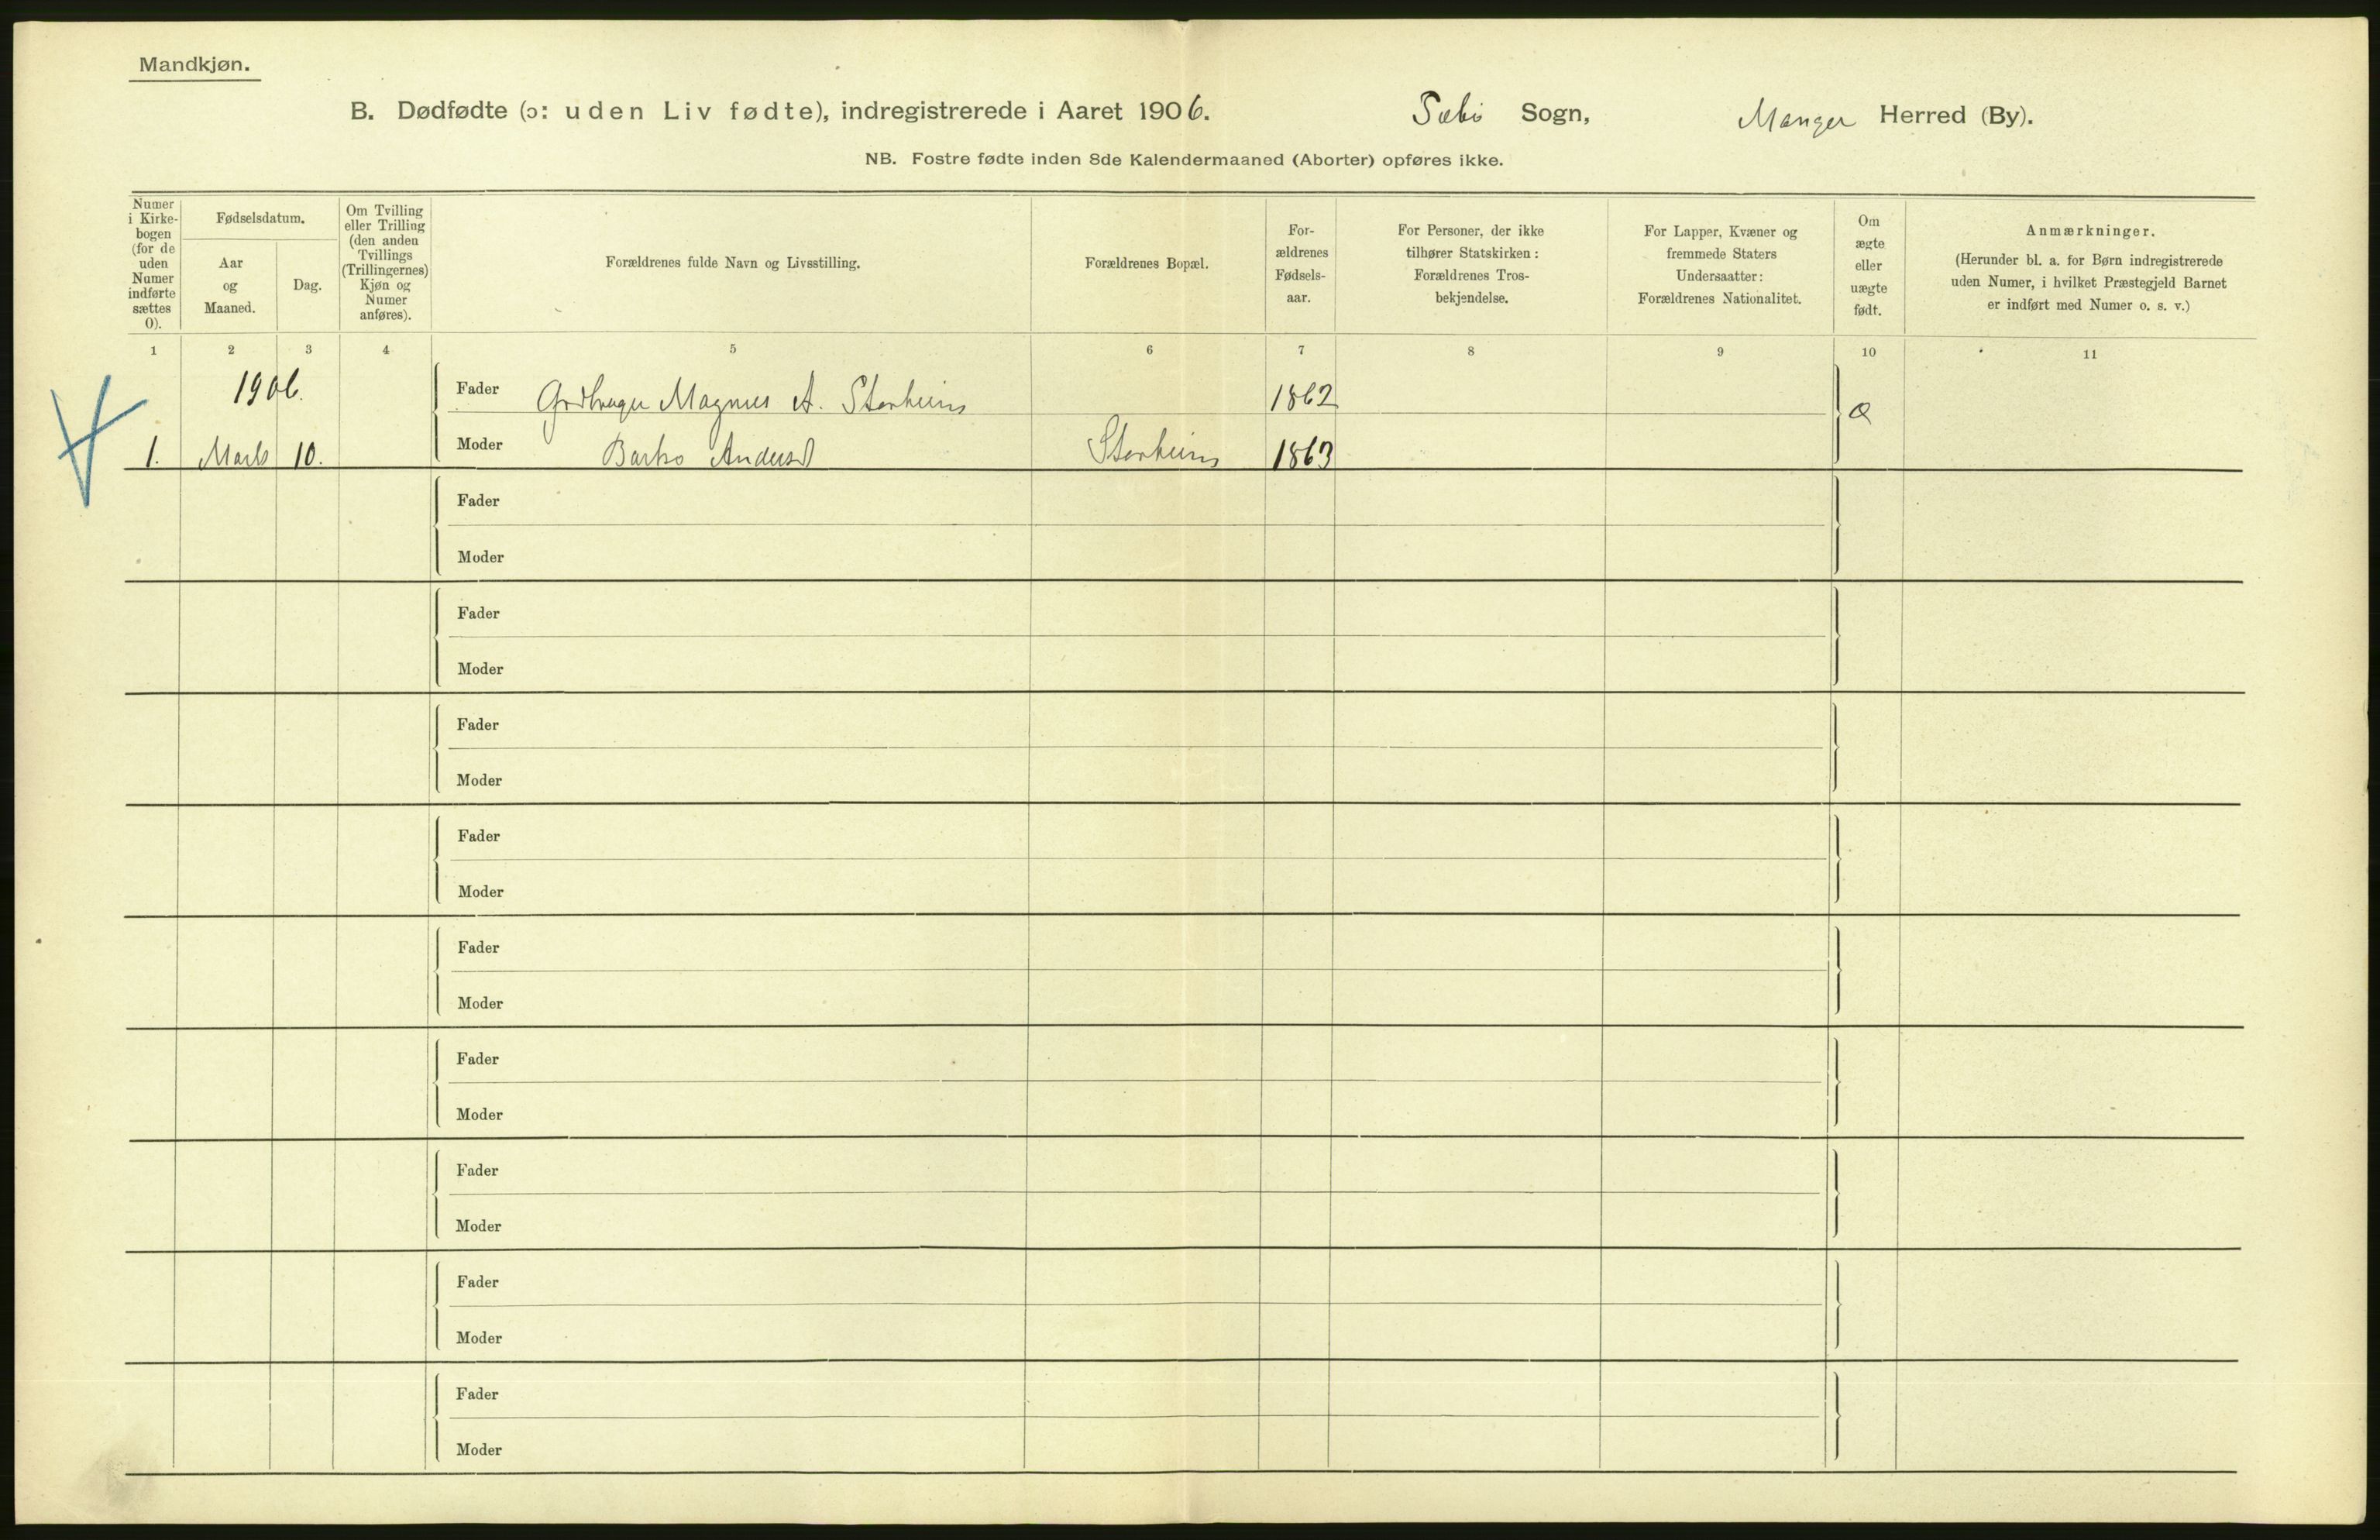 Mandkjøn.
B. Dødfødte (ɔ: uden Liv fødte), indregistrerede i Aaret 1906. Sæbø Sogn, Manger Herred (By).
NB. Fostre fødte inden 8de Kalendermaaned (Aborter) opføres ikke.
Numer
i Kirke-
bogen
(for de
uden
Numer
indførte
sættes
0).
Fødselsdatum.
Aar
og
Maaned.
Dag.
Om Tvilling
eller Trilling
(den anden
Tvillings
(Trillingernes)
Kjøn og
Numer
anføres).
Forældrenes fulde Navn og Livsstilling.
Forældrenes Bopæl.
For-
ældrenes
Fødsels-
aar.
For Personer, der ikke
tilhører Statskirken:
Forældrenes Tros-
bekjendelse.
For Lapper, Kvæner og
fremmede Staters
Undersaatter:
Forældrenes Nationalitet.
Om
ægte
eller
uægte
født.
Anmærkninger.
(Herunder bl. a. for Børn indregistrerede
uden Numer, i hvilket Præstegjeld Barnet
er indført med Numer o. s. v.)
1 2 3 4 5 6 7 8 9 10 11
1906.
Fader Grdbruger Magnus A. Storheim 1862 Æ
1. Marts 10. Moder Andersd Storheim 1863
Fader
Moder
Fader
Moder
Fader
Moder
Fader
Moder
Fader
Moder
Fader
Moder
Fader
Moder
Fader
Moder
Fader
Moder